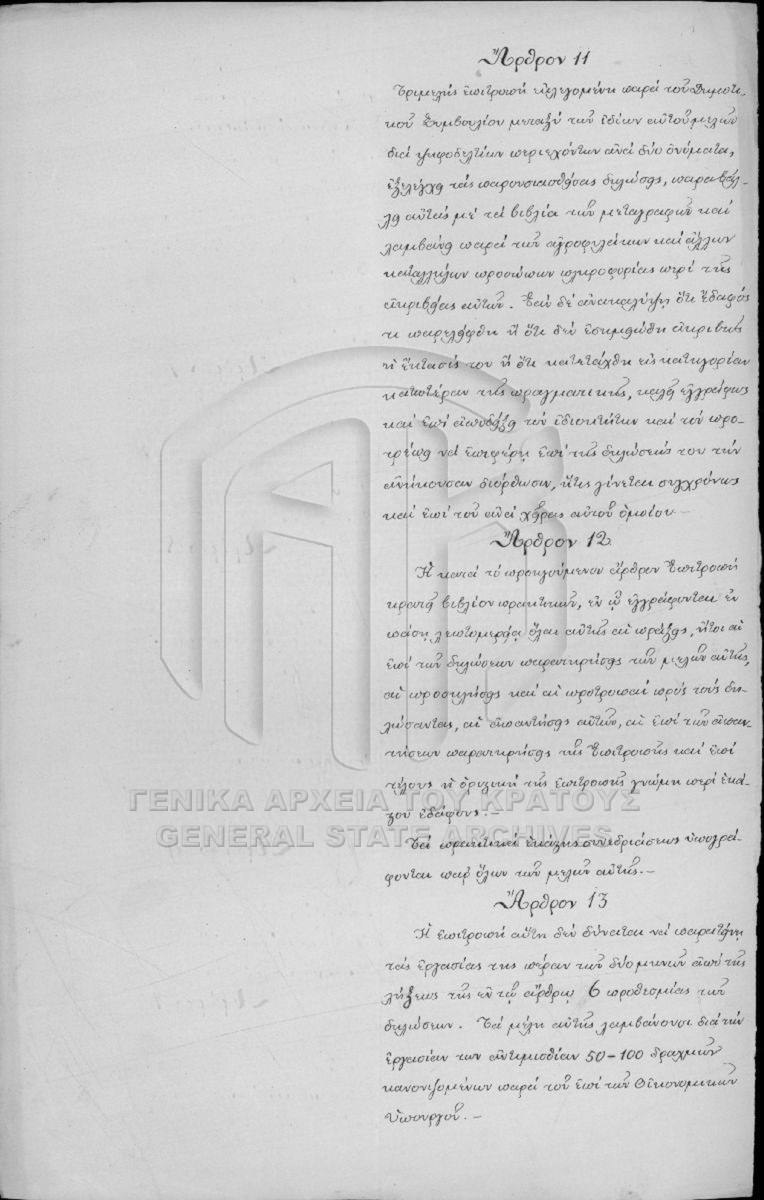 Ἄρθρον 11
Τριμελὴς ἐπιτροπὴ ἐκλεγομένη παρὰ τοῦ Δημοτι-
κοῦ Συμβουλίου μεταξὺ τῶν ἰδίων αὐτοῦ μελῶν
διὰ ψηφοδελτίων περιεχόντων ἀνὰ δύο ὀνόματα,
ἐξελέγχει τὰς παρουσιασθείσας δηλώσεις, παραβάλ-
λει αὐτὰς μὲ τὰ βιβλία τῶν μεταγραφῶν καὶ
λαμβάνει παρὰ τῶν ἀγροφυλάκων καὶ ἄλλων
καταλλήλων προσώπων πληροφορίας περὶ τῆς
ἀκριβείας αὐτῶν. Ἐὰν δὲ ἀνακαλύψῃ ὅτι ἔδαφός
τι παρελήφθη ἢ ὅτι δὲν ἐσημειώθη ἀκριβὴς
ἡ ἔκτασίς του ἢ ὅτι κατετάχθη εἰς κατηγορίαν
κατωτέραν τῆς πραγματικῆς, καλεῖ ἐγγράφως
καὶ ἐπὶ ἀποδείξει τὸν ἰδιοκτήτην καὶ τὸν προ-
τρέπει νὰ ἐπιφέρῃ ἐπὶ τῆς δηλώσεώς του τὴν
ἀνήκουσαν διόρθωσιν, ἥτις γίνεται συγχρόνως
καὶ ἐπὶ τοῦ ἀνὰ χεῖρας αὐτοῦ ὁμοίου.—
Ἄρθρον 12
Ἡ κατὰ τὸ προηγούμενον ἄρθρον Ἐπιτροπὴ
κρατεῖ βιβλίον πρακτικῶν, ἐν ᾧ ἐγγράφονται ἐν
πάσῃ λεπτομερείᾳ ὅλαι αὐτῆς αἱ πράξεις, ἤτοι αἱ
ἐπὶ τῶν δηλώσεων παρατηρήσεις τῶν μελῶν αὐτῆς,
αἱ προσκλήσεις καὶ αἱ προτροπαὶ πρὸς τοὺς δη-
λώσαντας, αἱ ἀπαντήσεις αὐτῶν, αἱ ἐπὶ τῶν ἀπαν-
τήσεων παρατηρήσεις τῆς Ἐπιτροπῆς καὶ ἐπὶ
τέλους ἡ ὁριστικὴ τῆς ἐπιτροπῆς γνώμη περὶ ἑκά-
στου ἐδάφους.—
ΓΕΝΙΚΑ ΑΡΧΕΙΑ ΤΟΥ ΚΡΑΤΟΥΣ
GENERAL STATE ARCHIVES
Τὰ πρακτικὰ ἑκάστης συνεδριάσεως ὑπογρά-
φονται παρ' ὅλων τῶν μελῶν αὐτῆς.—
Ἄρθρον 13
Ἡ ἐπιτροπὴ αὕτη δὲν δύναται νὰ παρατείνῃ
τὰς ἐργασίας της πέραν τῶν δύο μηνῶν ἀπὸ τῆς
λήξεως τῆς ἐν τῷ ἄρθρῳ 6 προθεσμίας τῶν
δηλώσεων. Τὰ μέλη αὐτῆς λαμβάνουσι διὰ τὴν
ἐργασίαν των ἀντιμισθίαν 50–100 δραχμῶν
κανονιζομένων παρὰ τοῦ ἐπὶ τῶν Οἰκονομικῶν
Ὑπουργοῦ.—